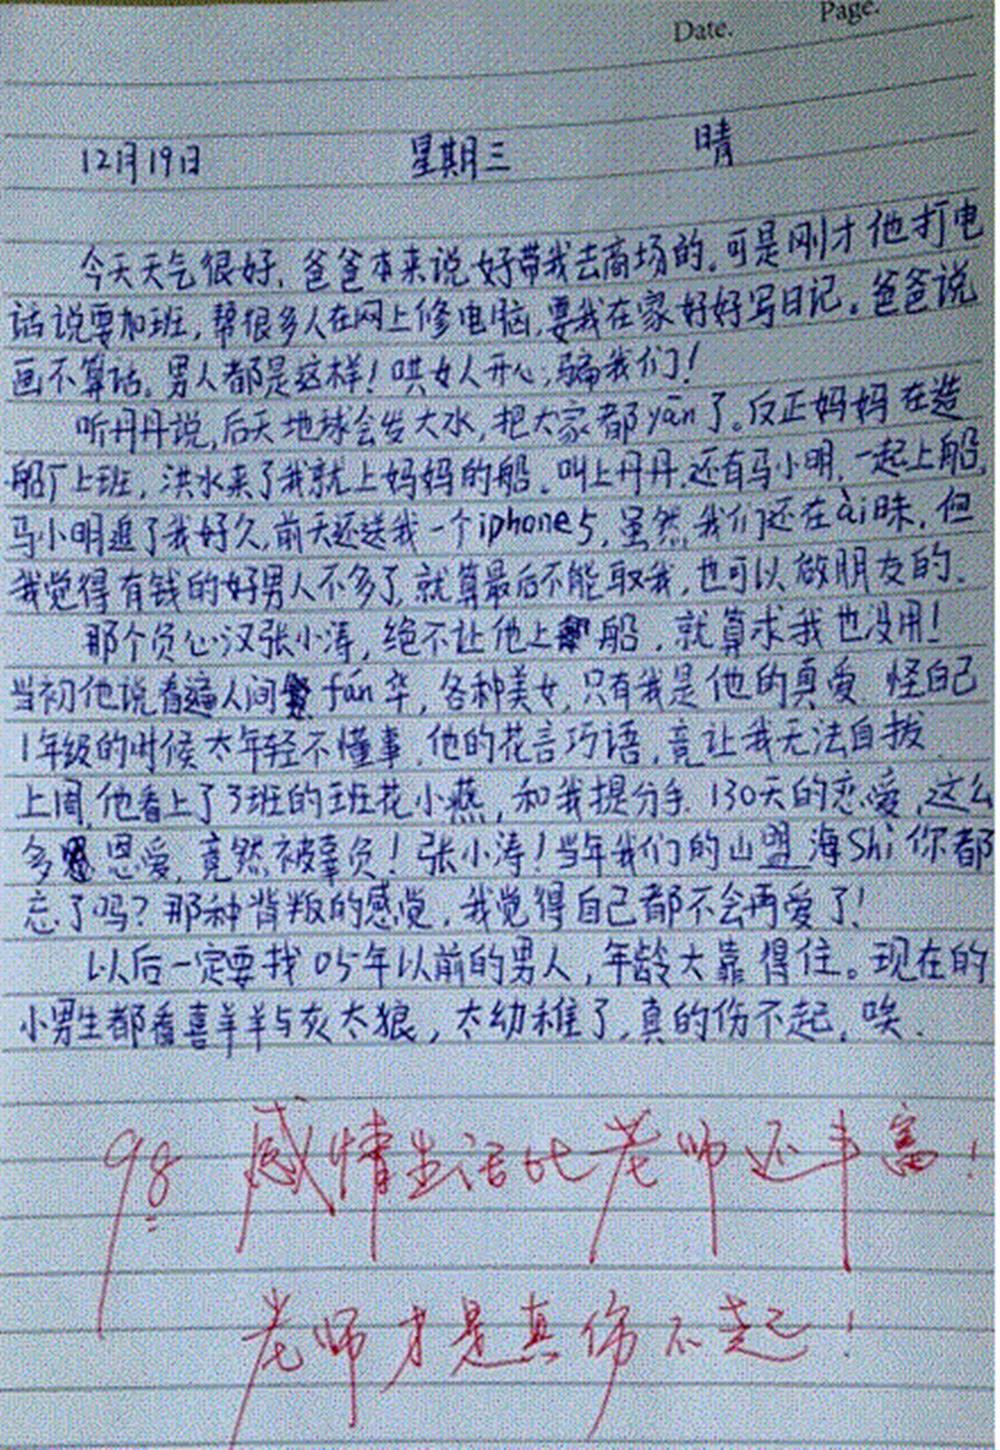 Date. Page.
12月19日 星期三 晴
今天天气很好，爸爸本来说好带我去商场的。可是刚才他打电
话说要加班，帮很多人在网上修电脑，要我在家好好写日记。爸爸说
画不算话。男人都是这样！哄女人开心，骗我们！
听丹丹说，后天地球会发大水，把大家都yān了。反正妈妈在造
船厂上班，洪水来了我就上妈妈的船。叫上丹丹，还有马小明，一起上船。
马小明追了我好久，前天还送我一个iphone5，虽然我们还在ài昧，但
我觉得有钱的好男人不多了，就算最后不能取我，也可以做朋友的。
那个负心汉张小涛，绝不让他上船，就算求我也没用！
当初他说看遍人间fán华，各种美女，只有我是他的真爱 怪自己
1年级的时候太年轻不懂事，他的花言巧语，竟让我无法自拔
上周，他看上了3班的班花小燕，和我提分手 130天的恋爱，这么
多恩爱，竟然被辜负！张小涛！当年我们的山盟海Shi你都
忘了吗？那种背叛的感觉，我觉得自己都不会再爱了！
以后一定要找05年以前的男人，年龄大靠得住。现在的
小男生都看喜羊羊与灰太狼，太幼稚了，真的伤不起，唉．
98 感情生活比老师还丰富！
老师才是真伤不起！